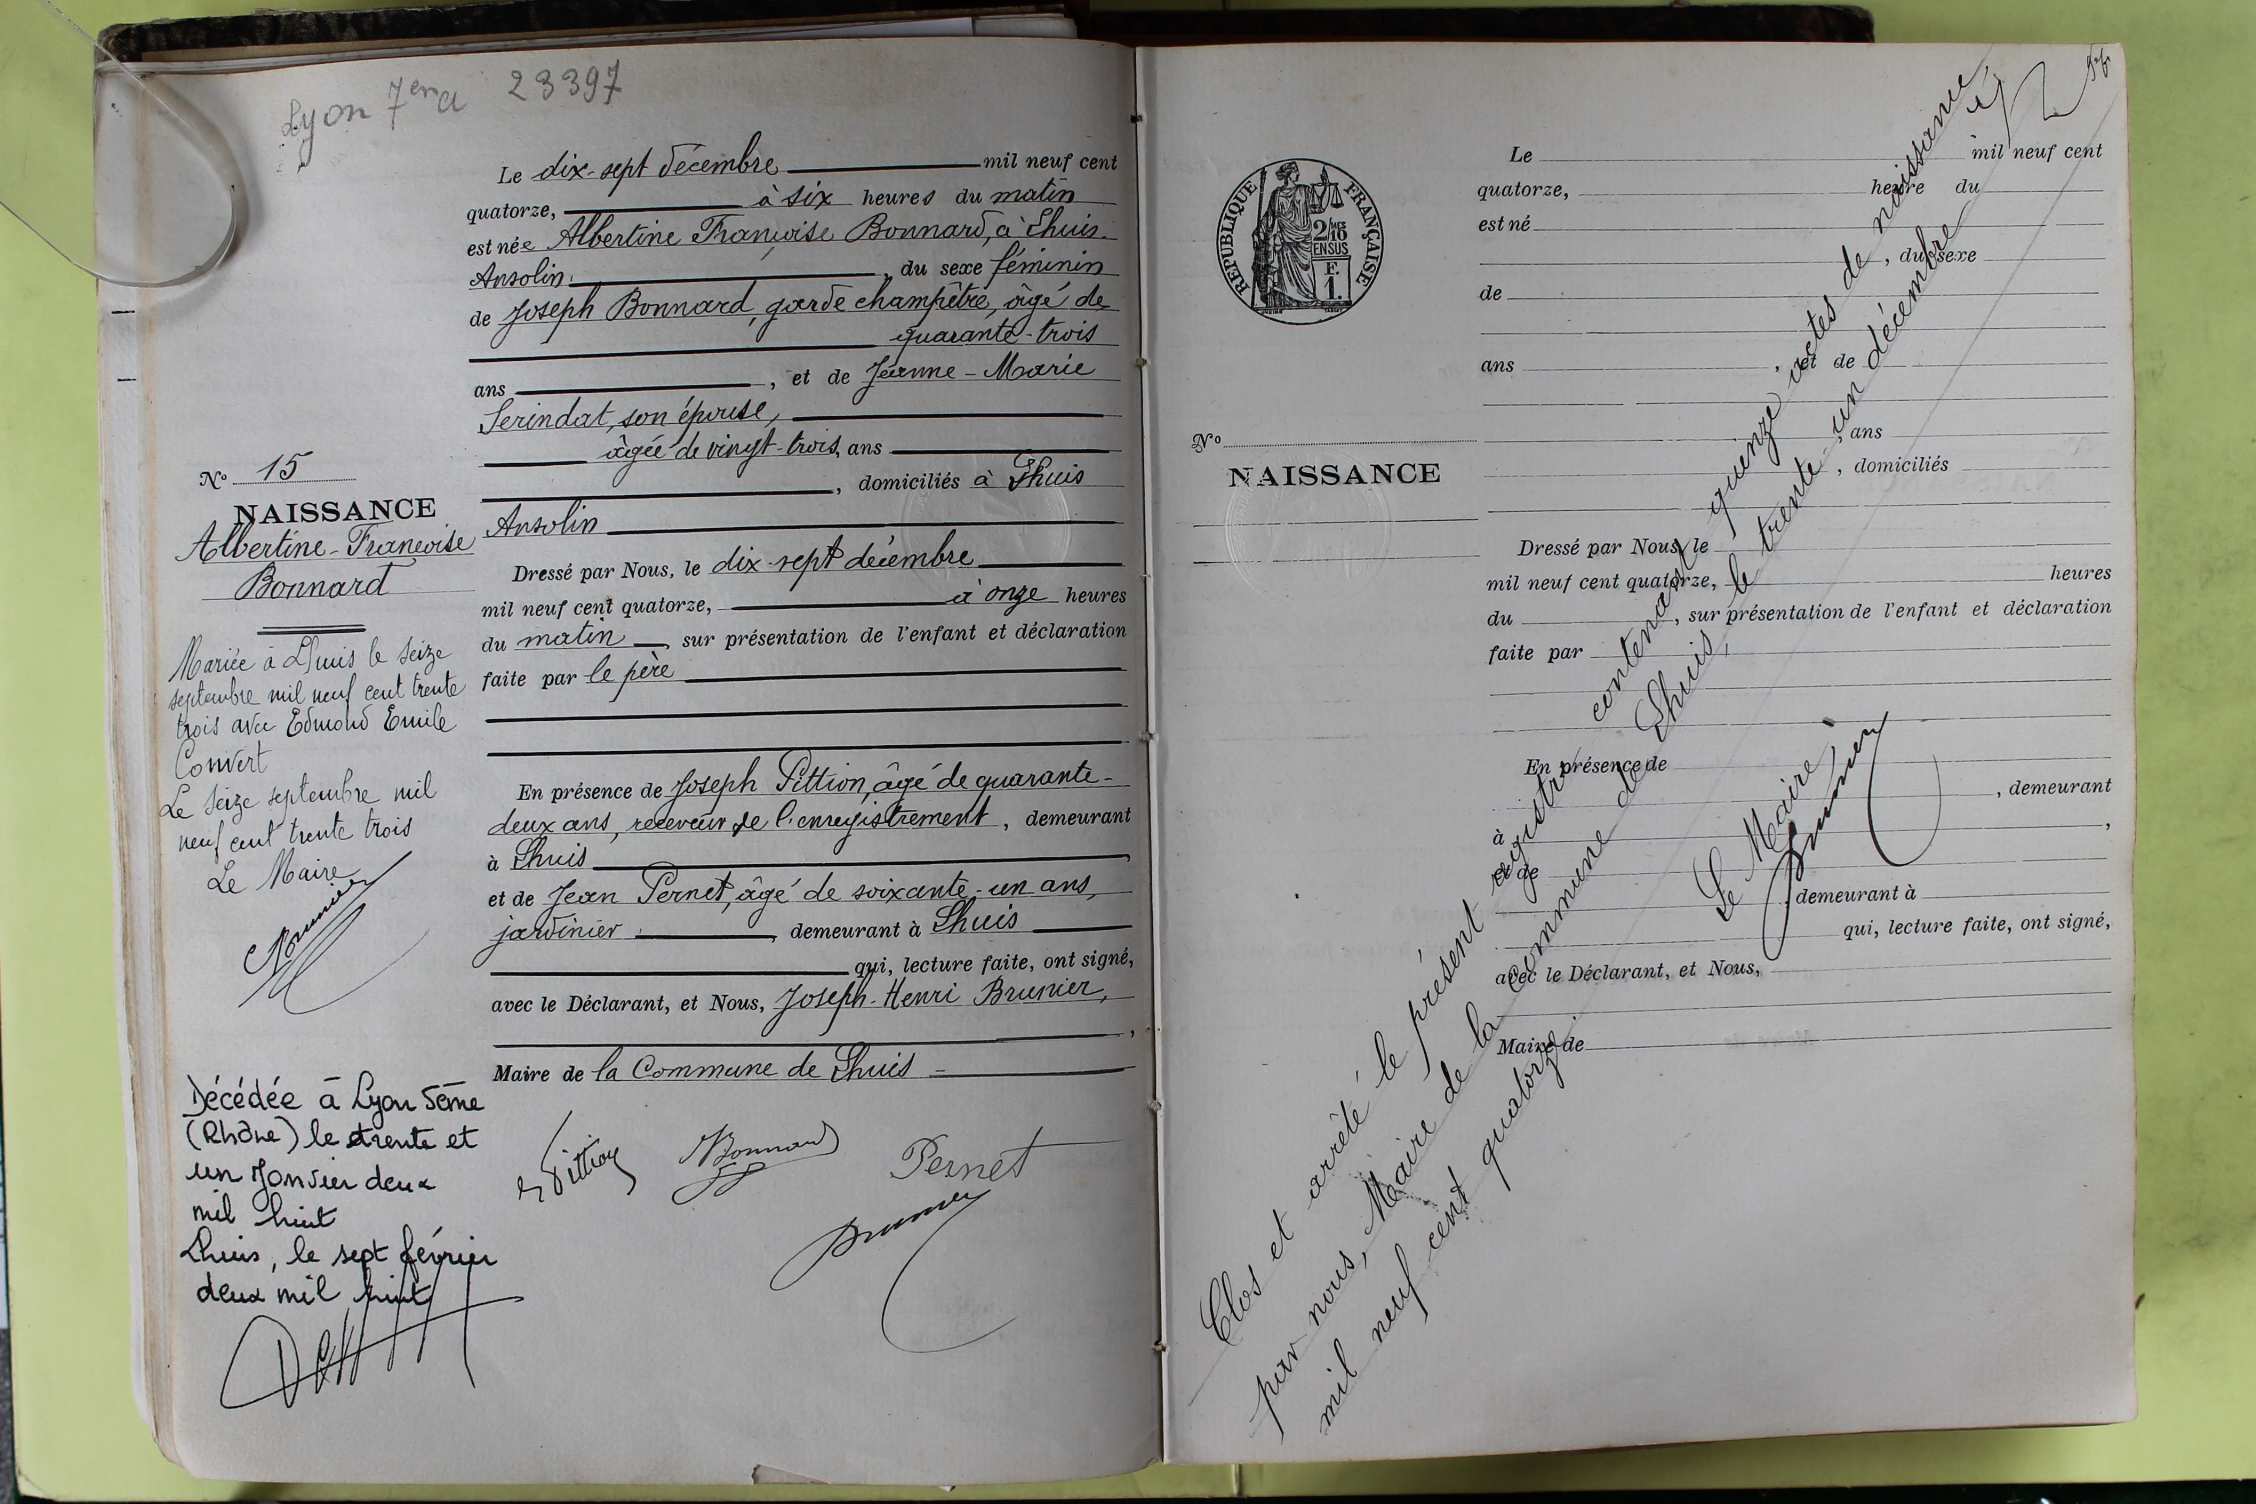 Lyon 7em a 23397
Le dix-sept décembre mil neuf cent
quatorze, à six heures du matin
est née Albertine Françoise Bonnard, à Lhuis
Ansolin, du sexe féminin
de Joseph Bonnard, garde champêtre, âgé de
quarante-trois
ans, et de Jeanne-Marie
Serindat, son épouse,
âgée de vingt-trois, ans
, domiciliés à Lhuis
Ansolin
Dressé par Nous, le dix-sept décembre
mil neuf cent quatorze, à onze heures
du matin, sur présentation de l'enfant et déclaration
faite par le père
En présence de Joseph Pittion, âgé de quarante-
deux ans, receveur de l'enregistrement, demeurant
à Lhuis
et de Jean Pernet, âgé de soixante-un ans,
jardinier, demeurant à Lhuis
qui, lecture faite, ont signé,
avec le Déclarant, et Nous, Joseph-Henri Brunier,
,
Maire de la Commune de Lhuis
Pittion Bonnard Pernet
Brunier
No 15
NAISSANCE
Albertine-Françoise
Bonnard
Mariée à Lhuis le seize
septembre mil neuf cent trente
trois avec Edmond Emile
Convert
Le seize septembre mil
neuf cent trente trois
Le Maire
Brunier
Décédée à Lyon 5ème
(Rhône) le trente et
un Janvier deux
mil huit
Lhuis, le sept février
deux mil huit
RÉPUBLIQUE FRANÇAISE
2/10es
EN SUS
F.
1.
No
NAISSANCE
Le mil neuf cent
quatorze, heure du
est né
, du sexe
de
ans , et de
, ans
, domiciliés
Dressé par Nous, le
mil neuf cent quatorze, heures
du , sur présentation de l'enfant et déclaration
faite par
En présence de
, demeurant
à ,
et de
, demeurant à
qui, lecture faite, ont signé,
avec le Déclarant, et Nous,
Maire de
Clos et arrêté le présent registre contenant quinze actes de naissance
par nous, Maire de la commune de Lhuis, le trente-un décembre
mil neuf cent quatorze.
Le Maire
Brunier